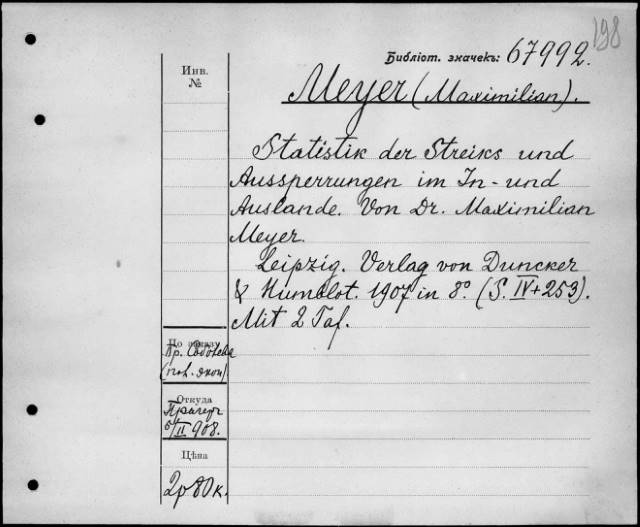 198
Библіот. значекъ: 67992.
Инв.
№
Meyer (Maximilian).
Statistik der Streiks und
Aussperrungen im In- und
Auslande. Von Dr. Maximilian
Meyer.
Leipzig. Verlag von Duncker
& Humblot. 1907 in 8° (S. IV+253).
Mit 2 Taf.
По заказу
Пр.
Откуда
5/II 908.
Цѣна
2р 80к.